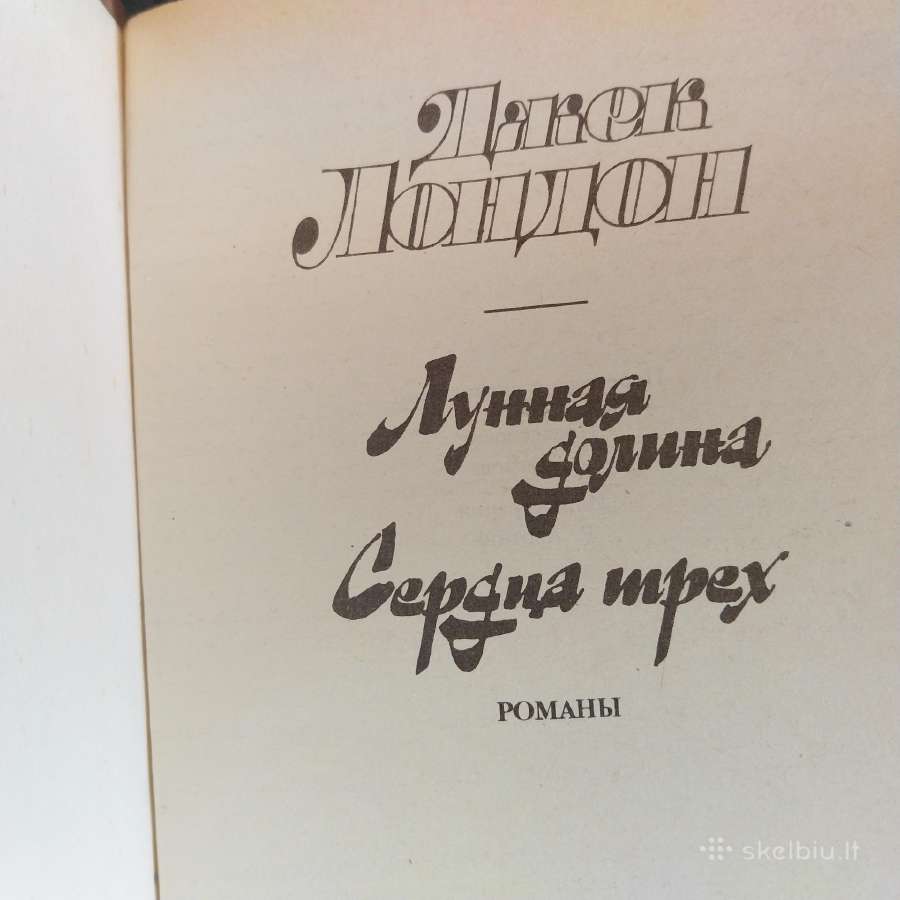 Джек
Лондон
Лунная
долина
Сердца трех
РОМАНЫ
skelbiu.lt